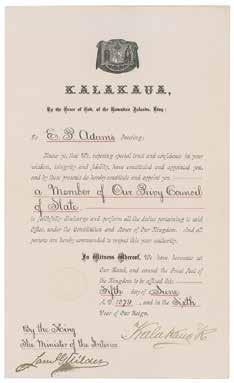 KALAKAUA,
By the Grace of God, of the Hawaiian Islands, King:
To E. P. Adams Greeting:
Know ye, that We, reposing special trust and confidence in your
wisdom, integrity and fidelity, have constituted and appointed you,
and by these presents do hereby constitute and appoint you
a Member of Our Privy Council
of State
to faithfully discharge and perform all the duties pertaining to said
Office, under the Constitution and Laws of Our Kingdom. And all
persons are hereby commanded to respect this your authority.
In Witness Whereof, We have hereunto set
Our Hand, and caused the Great Seal of
the Kingdom to be affixed this
Fifth day of June
A.D. 1879, and in the Sixth
Year of Our Reign.
Kalakaua R
By the King
The Minister of the Interior
Saml G Wilder